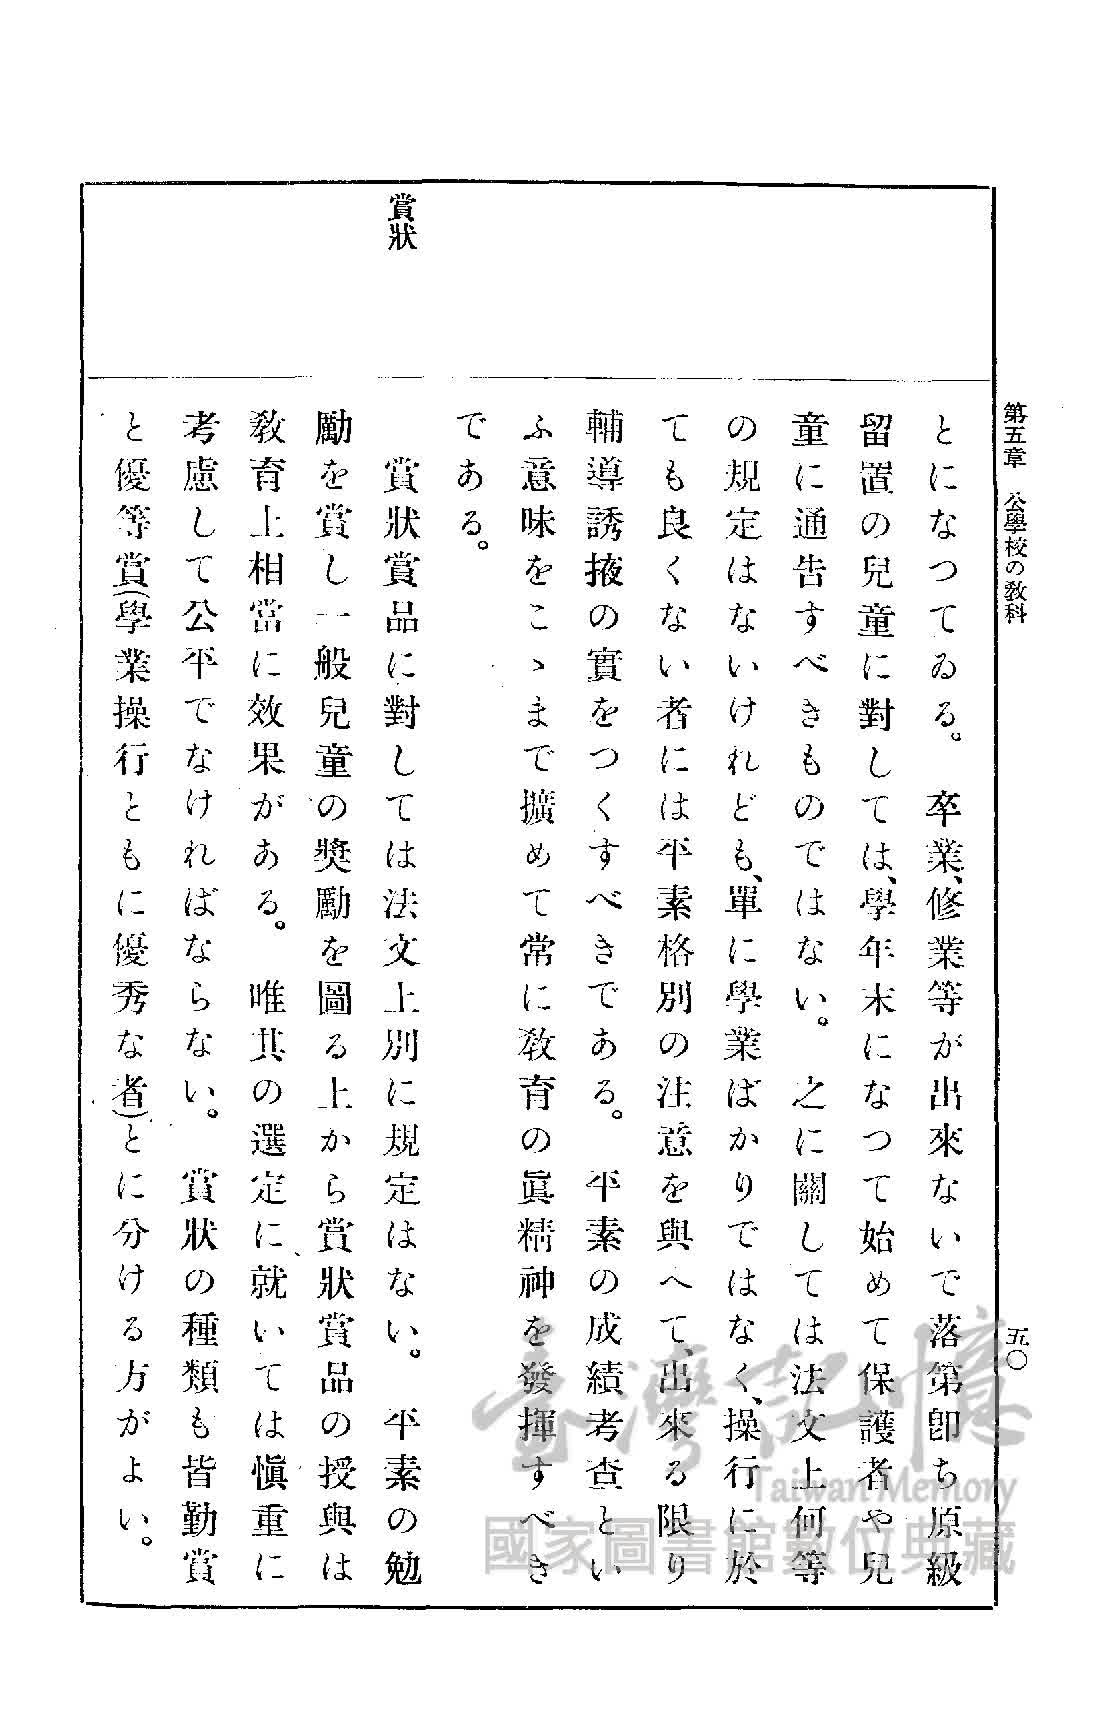 第五章　公學校の教科
五〇
とになつてゐる。　卒業、修業等が出來ないで落第卽ち原級
留置の兒童に對しては、學年末になつて始めて保護者や兒
童に通告すべきものではない。　之に關しては法文上何等
の規定はないけれども、單に學業ばかりではなく、操行に於
ても良くない者には平素格別の注意を與へて、出來る限り
輔導誘掖の實をつくすべきである。　平素の成績考査とい
ふ意味をこゝまで擴めて常に敎育の眞精神を發揮すべき
である。
賞狀
賞狀賞品に對しては法文上別に規定はない。　平素の勉
勵を賞し一般兒童の奬勵を圖る上から賞狀賞品の授與は
敎育上相當に效果がある。　唯其の選定に就いては愼重に
考慮して公平でなければならない。　賞狀の種類も皆勤賞
と優等賞(學業操行ともに優秀な者)とに分ける方がよい。
臺灣記憶
Taiwan Memory
國家圖書館數位典藏